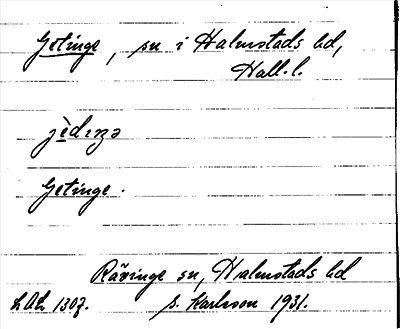 Getinge, sn i Halmstads hd,
Hall. l.
Getinge.
Rävinge sn, Halmstads hd
LAL 1307. S. Karlsson 1931.